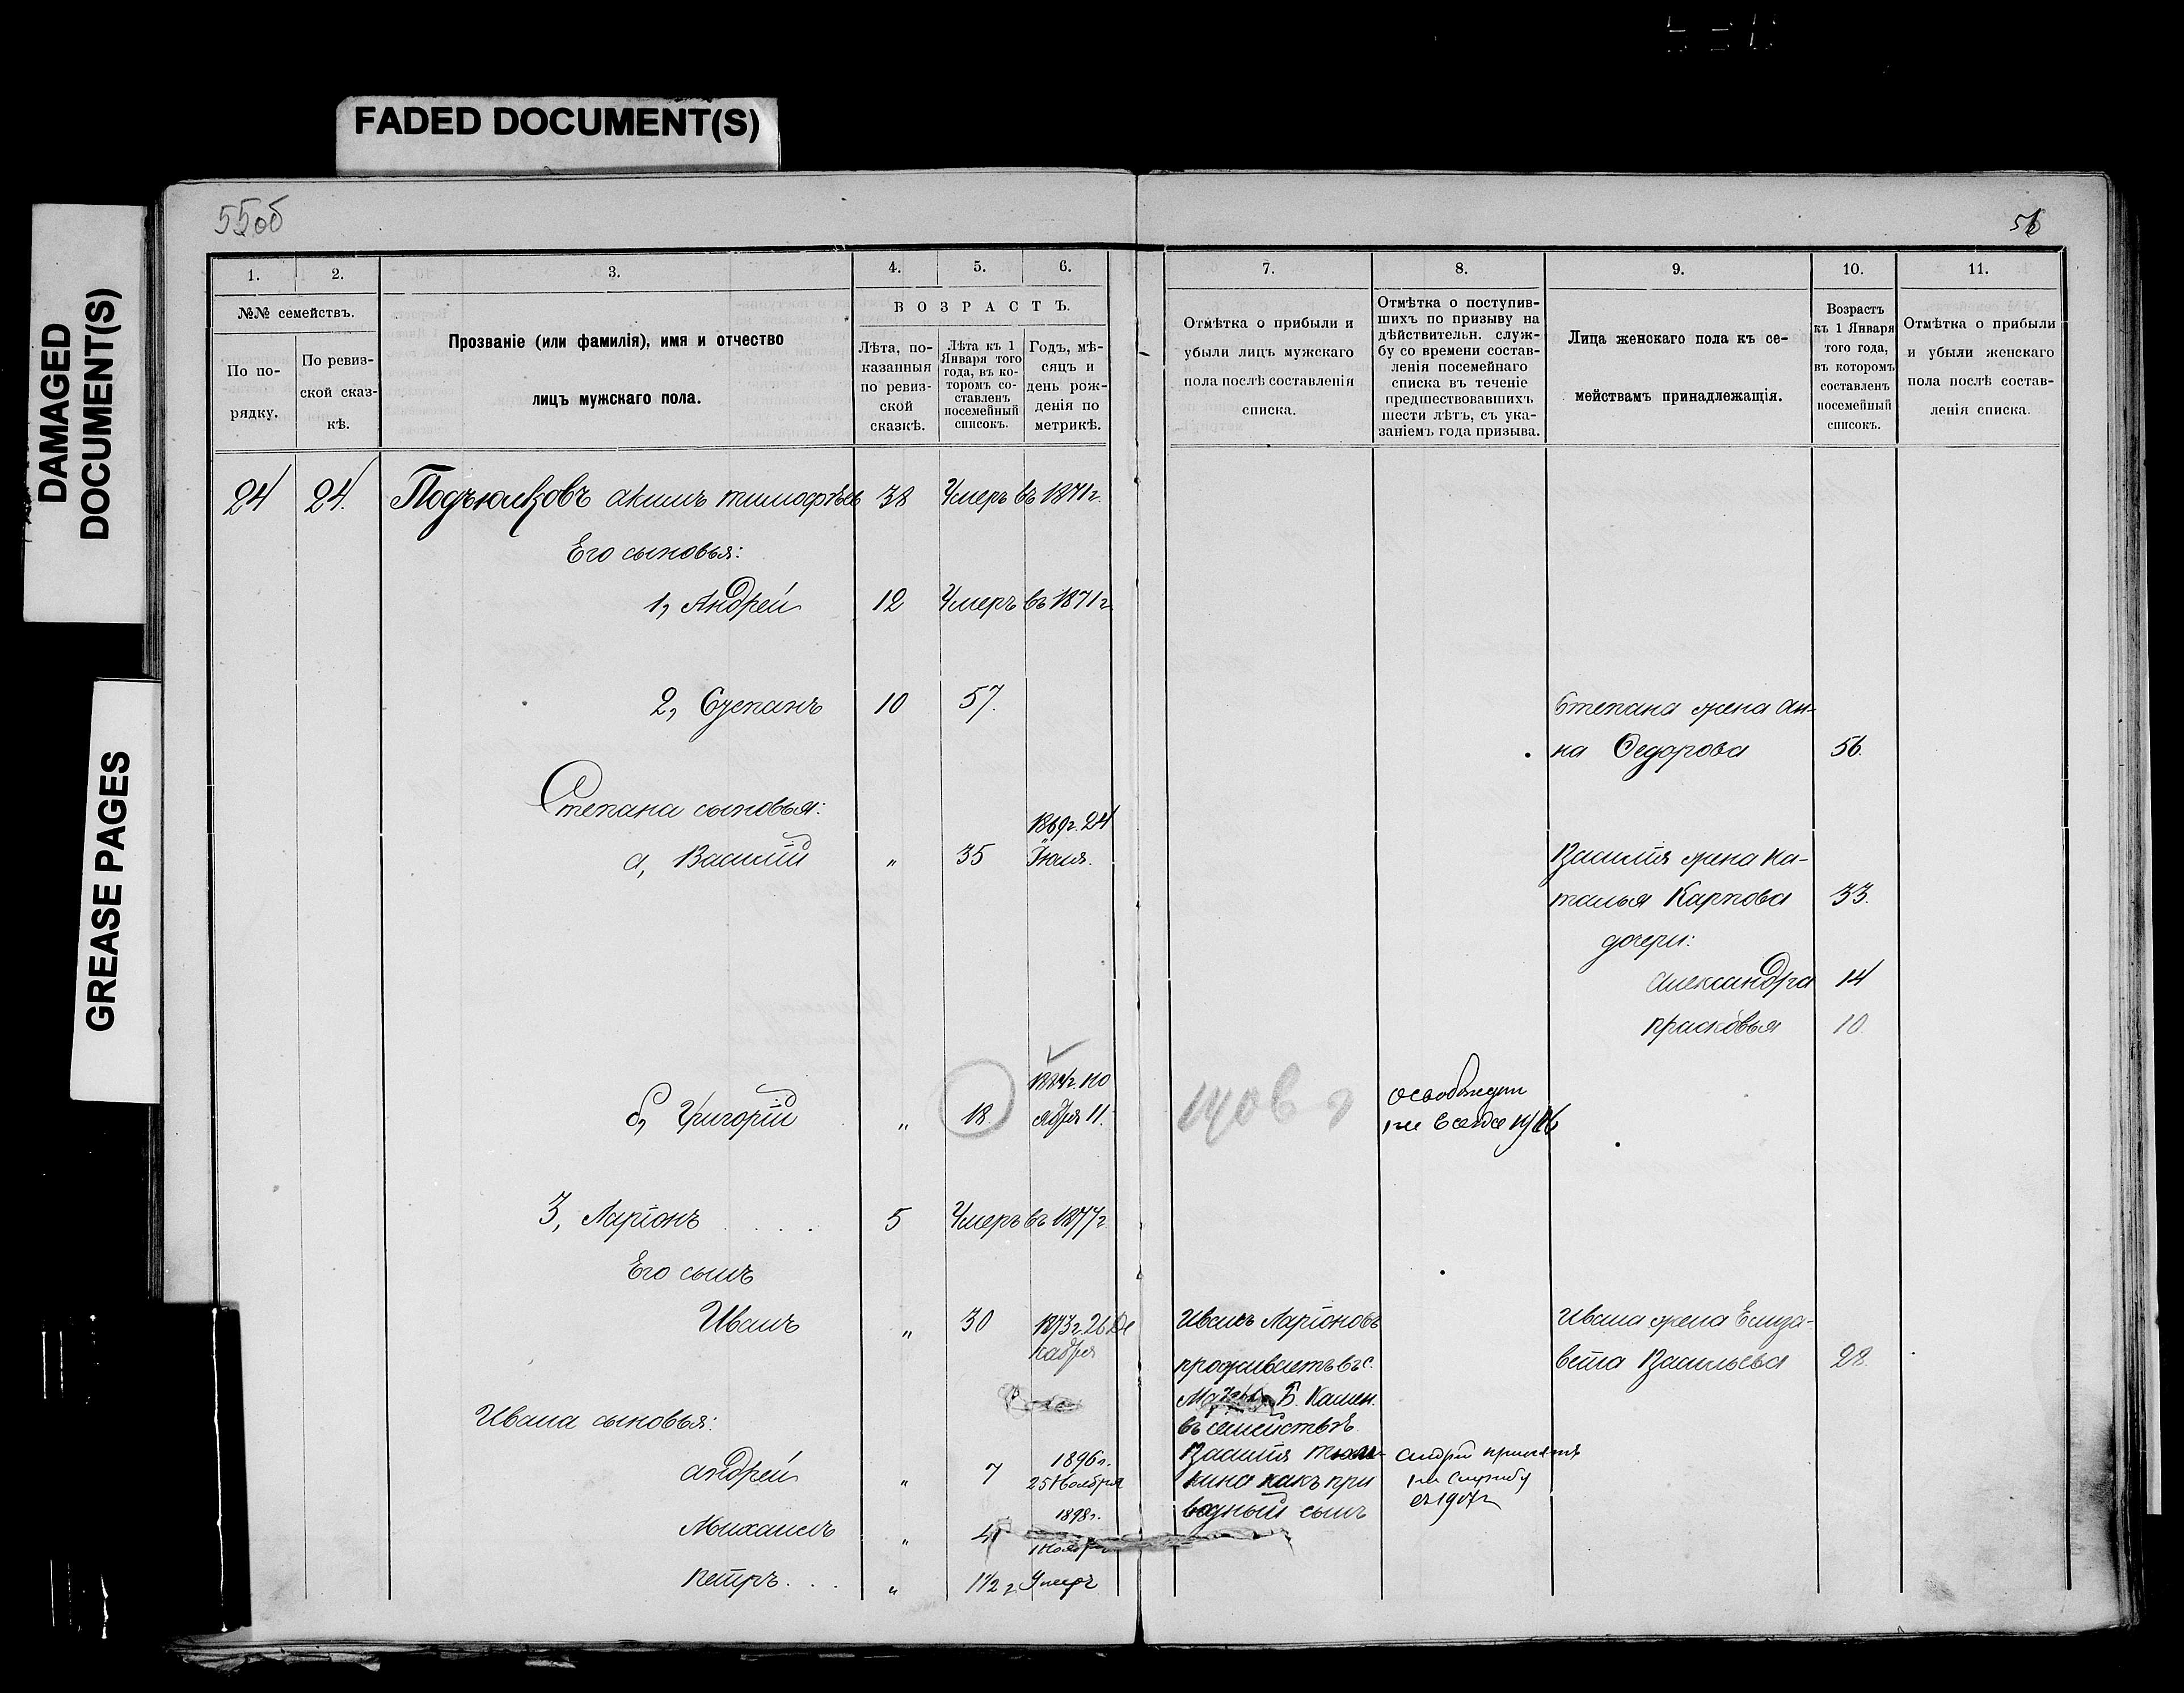 FADED DOCUMENT(S)
DAMAGED
DOCUMENT(S)
GREASE PAGES
55об
56
1.
2.
3.
4.
5.
6.
7.
8.
9.
10.
11.
№№ семействъ.
По по-
рядку.
По ревиз-
ской сказ-
кѣ.
Прозваніе (или фамилія), имя и отчество
лицъ мужскаго пола.
ВОЗРАСТЪ.
Лѣта, по-
казанныя
по ревиз-
ской
сказкѣ.
Лѣта къ 1
Января того
года, въ ко-
торомъ со-
ставленъ
посемейный
списокъ.
Годъ, мѣ-
сяцъ и
день рож-
денія по
метрикѣ.
Отмѣтка о прибыли и
убыли лицъ мужскаго
пола послѣ составленія
списка.
Отмѣтка о поступив-
шихъ по призыву на
дѣйствительн. служ-
бу со времени состав-
ленія посемейнаго
списка въ теченіе
предшествовавшихъ
шести лѣтъ, съ ука-
заніемъ года призыва.
Лица женскаго пола къ се-
мействамъ принадлежащія.
Возрастъ
къ 1 Января
того года,
въ которомъ
составленъ
посемейный
списокъ.
Отмѣтка о прибыли
и убыли женскаго
пола послѣ состав-
ленія списка.
24 24. акимъ тимофѣевъ 38 Умеръ въ 1871г.
Его сыновья:
1, Андрей 12 Умеръ въ 1871г
2, Степанъ 10 57.
Степана жена Ан-
на Федорова 56.
Степана сыновья:
а, Василій " 35 1869г. 24
Іюля.
Василія жена На-
талья Карпова 33.
дочери:
александра 14
прасковья 10.
б, Григорій " 18. но
ября 11.
освобожден
3, Ларіонъ 5 Умеръ въ 1877г
Его сынъ
Иванъ " 30 1873г. 26 Де
кабря
Иванъ Ларіоновъ
проживаетъ въ с.
Б. Камен.
въ семействѣ
Василія
кина какъ при
водный сынъ
Ивана жена Елиза-
вета Васильева 28.
Ивана сыновья:
андрей " 7 1896г.
25 Ноября
андрей принятъ
на службу
въ 1917г
Михаилъ " 4 1898г.
1 Ноября
петръ... " 1 1/2 г. Умеръ